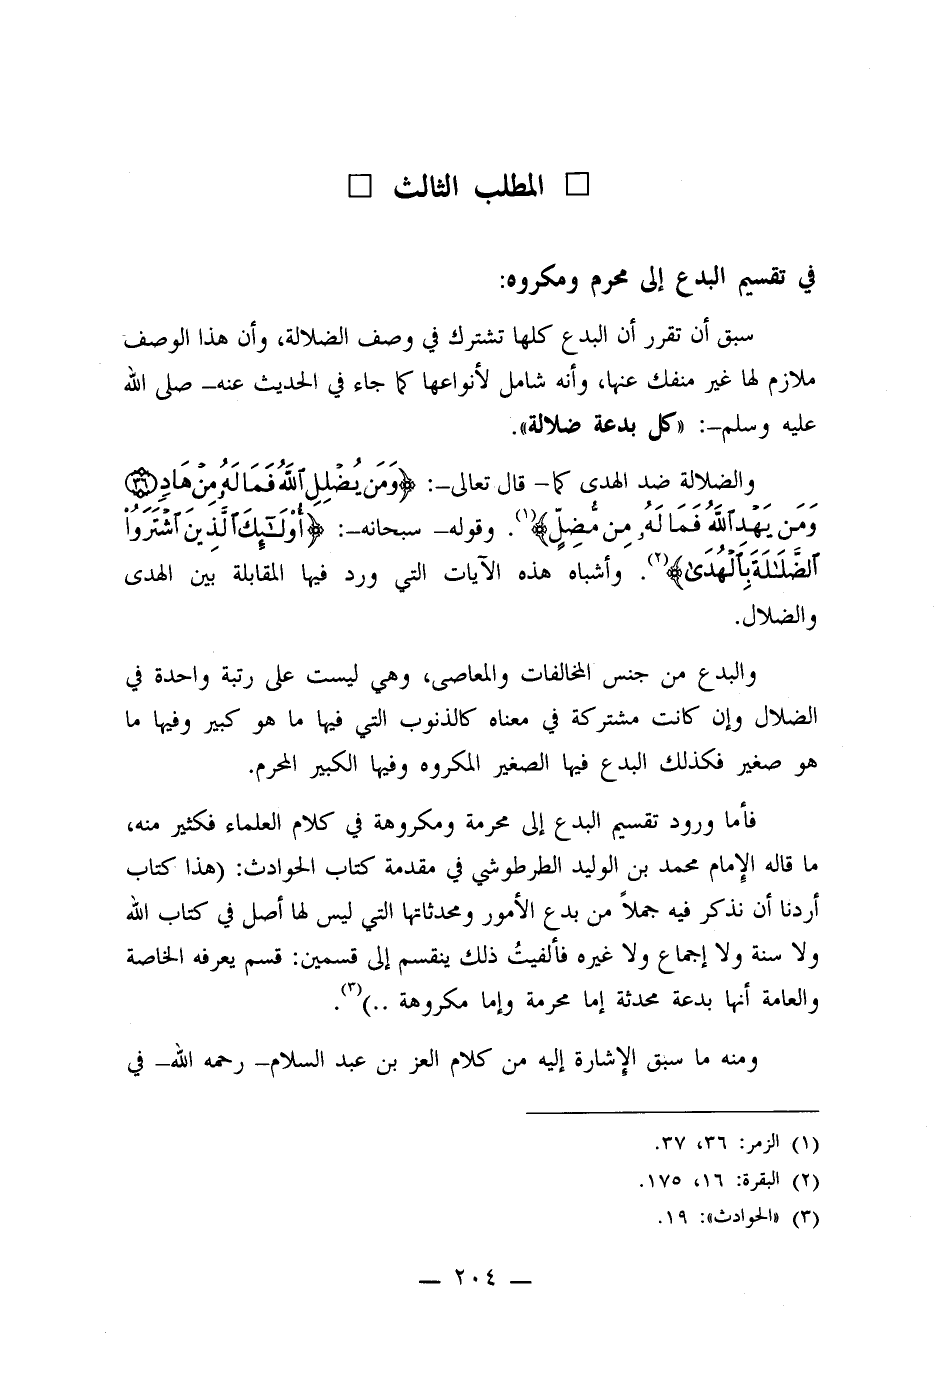 □ المطلب الثالث □
في تقسيم البدع إلى محرم ومكروه:
سبق أن تقرر أن البدع كلها تشترك في وصف الضلالة، وأن هذا الوصف
ملازم لها غير منفك عنها، وأنه شامل لأنواعها كما جاء في الحديث عنه – صلى الله
عليه وسلم –: «كل بدعة ضلالة».
والضلالة ضد الهدى كما – قال تعالى –: ﴿وَمَن يُضْلِلِ ٱللَّهُ فَمَا لَهُۥ مِنْ هَادٍ ۝٣٦
وَمَن يَهْدِ ٱللَّهُ فَمَا لَهُۥ مِن مُّضِلٍّ﴾(١). وقوله – سبحانه –: ﴿أُوْلَـٰٓئِكَ ٱلَّذِينَ ٱشْتَرَوُاْ
ٱلضَّلَـٰلَةَ بِٱلْهُدَىٰ﴾(٢). وأشباه هذه الآيات التي ورد فيها المقابلة بين الهدى
والضلال.
والبدع من جنس المخالفات والمعاصى، وهي ليست على رتبة واحدة في
الضلال وإن كانت مشتركة في معناه كالذنوب التي فيها ما هو كبير وفيها ما
هو صغير فكذلك البدع فيها الصغير المكروه وفيها الكبير المحرم.
فأما ورود تقسيم البدع إلى محرمة ومكروهة في كلام العلماء فكثير منه،
ما قاله الإمام محمد بن الوليد الطرطوشي في مقدمة كتاب الحوادث: (هذا كتاب
أردنا أن نذكر فيه جملاً من بدع الأمور ومحدثاتها التي ليس لها أصل في كتاب الله
ولا سنة ولا إجماع ولا غيره فألفيتُ ذلك ينقسم إلى قسمين: قسم يعرفه الخاصة
والعامة أنها بدعة محدثة إما محرمة وإما مكروهة ..)(٣).
ومنه ما سبق الإشارة إليه من كلام العز بن عبد السلام – رحمه الله – في
(١) الزمر: ٣٦، ٣٧.
(٢) البقرة: ١٦، ١٧٥.
(٣) «الحوادث»: ١٩.
— ٢٠٤ —